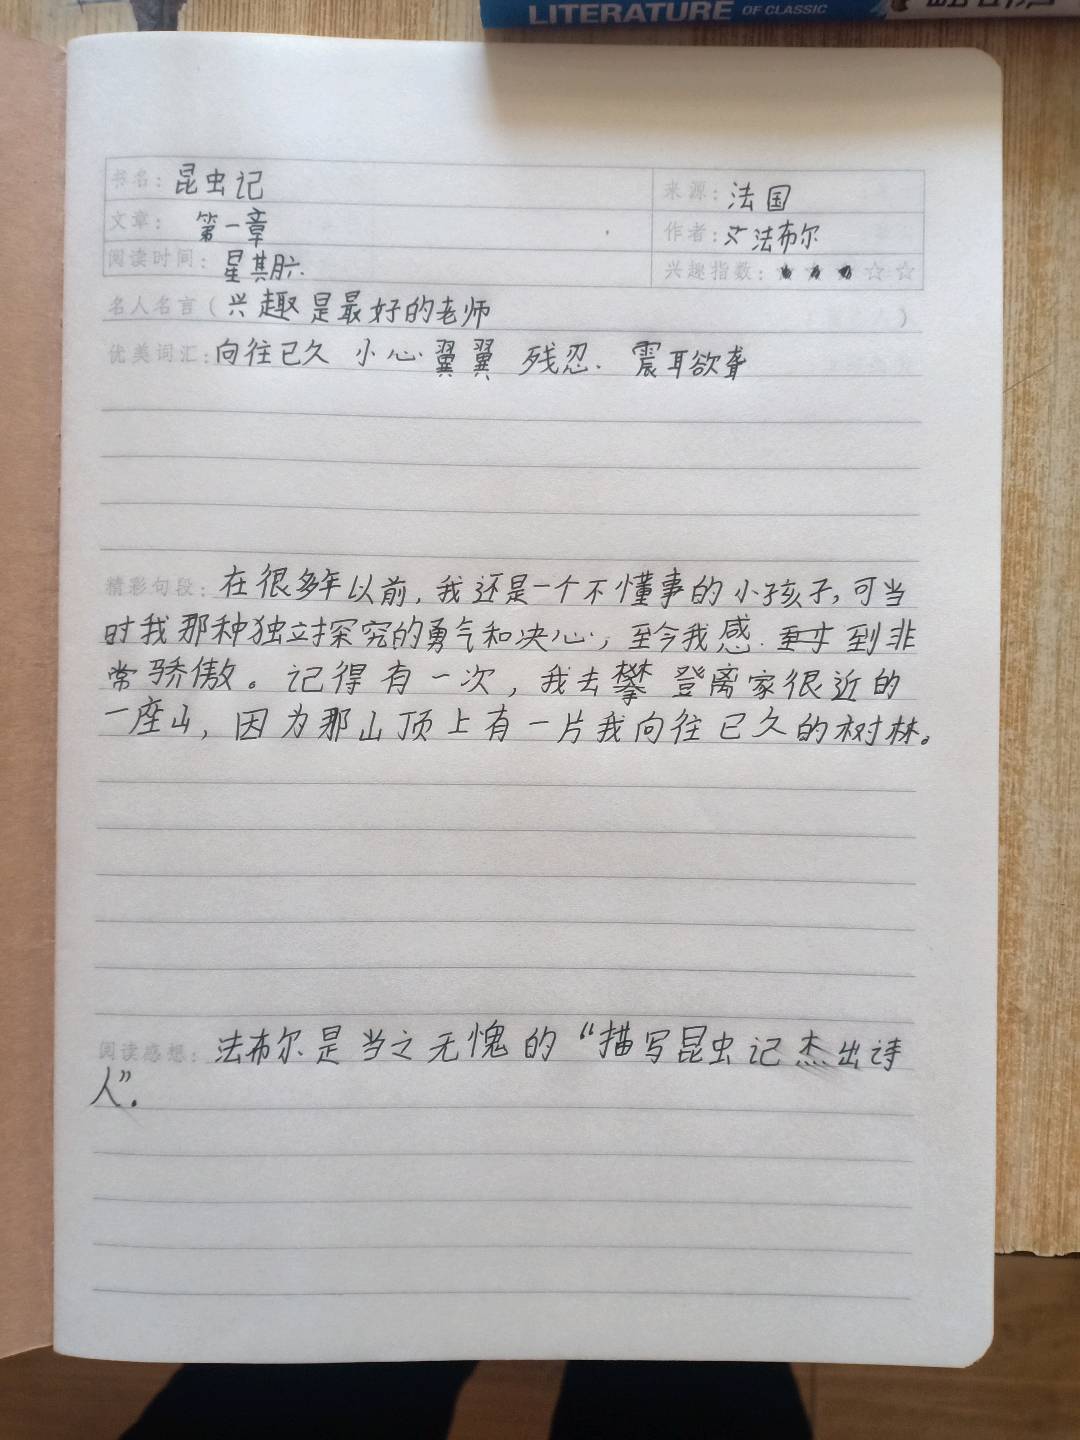 LITERATURE OF CLASSIC
书名: 昆虫记 来源: 法国
文章: 第一章 作者: 法布尔
阅读时间: 星其六 兴趣指数: ★★★☆☆
名人名言 ( 兴趣是最好的老师 )
优美词汇: 向往已久 小心翼翼 残忍. 震耳欲聋
精彩句段: 在很多年以前, 我还是一个不懂事的小孩子, 可当
时我那种独立探究的勇气和决心, 至今我感 到非
常骄傲。记得有一次, 我去攀登离家很近的
一座山, 因为那山顶上有一片我向往已久的树林。
阅读感想: 法布尔是当之无愧的“描写昆虫记杰出诗
人”.